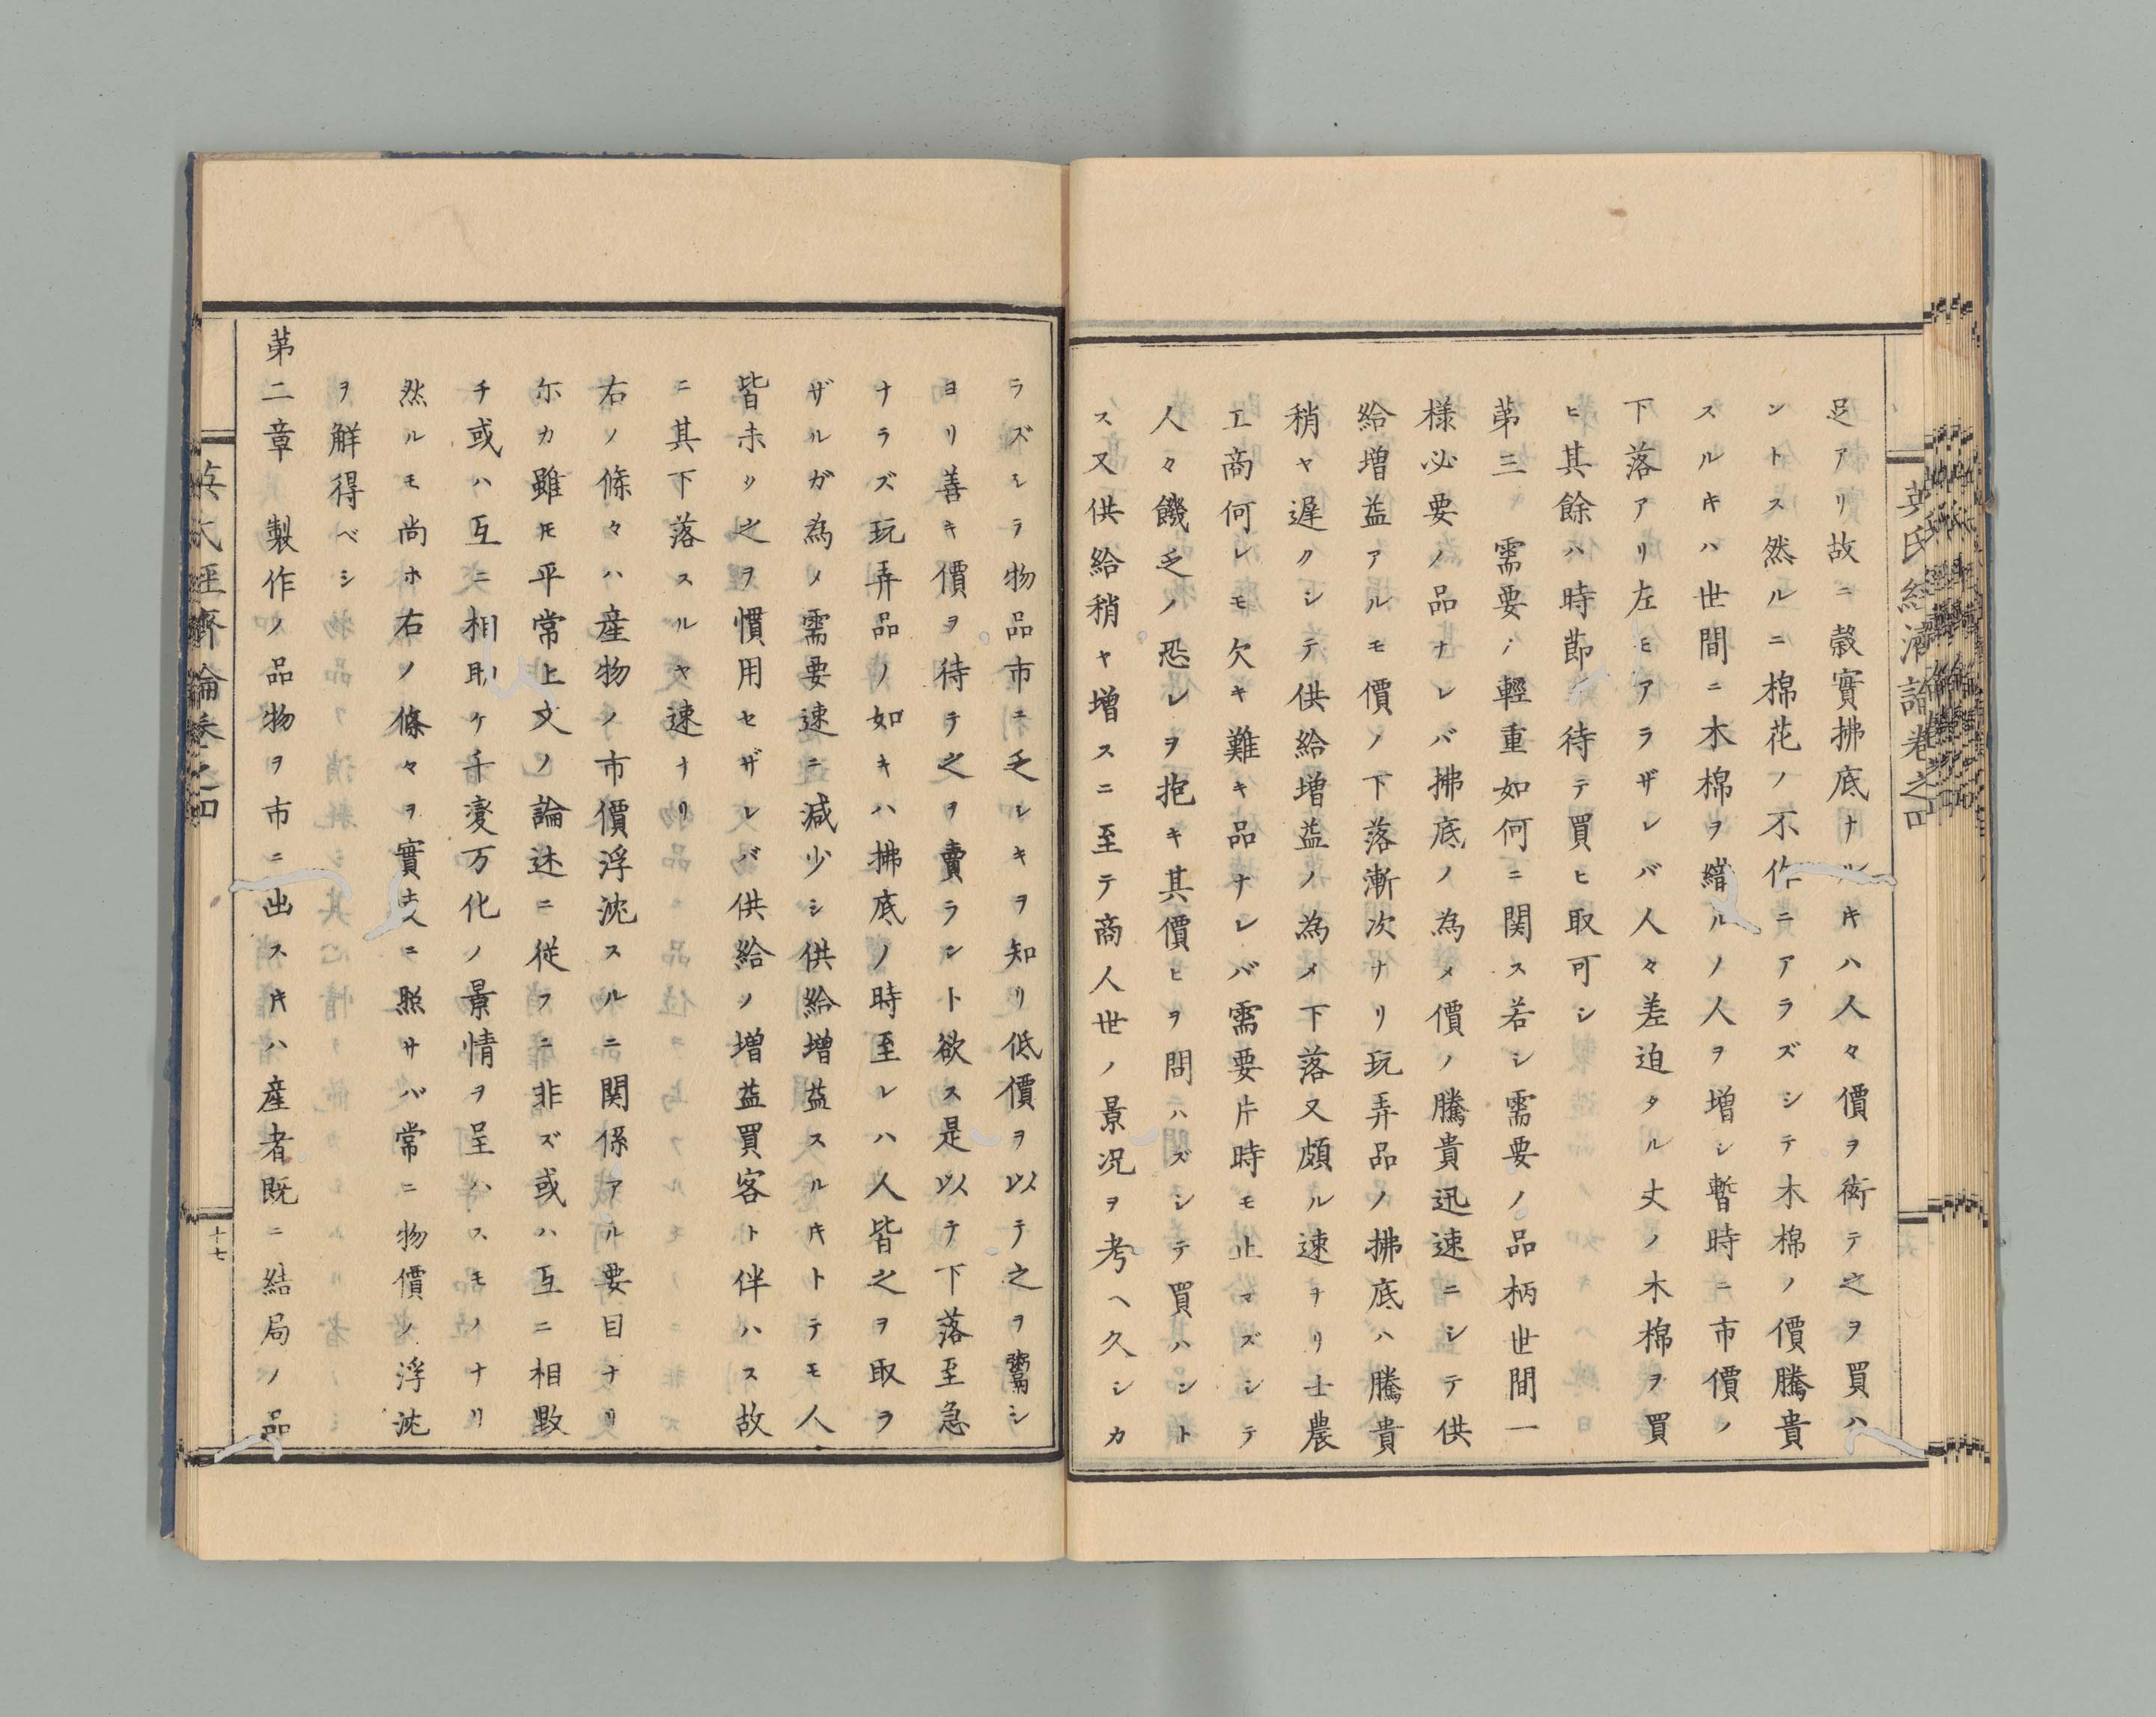 英氏經濟論卷之四
足アリ故ニ穀實拂底ナルキハ人々價ヲ衒テ之ヲ買ハ
ントス然ルニ棉花ノ不作ニアラズシテ木棉ノ價騰貴
スルキハ世間ニ木棉ヲ績ルノ人ヲ増シ暫時ニ市價ノ
下落アリ左モアラザレバ人々差迫タル丈ノ木棉ヲ買
ヒ其餘ハ時節ヲ待テ買ヒ取可シ
第三 需要ノ輕重如何ニ関ス若シ需要ノ品柄世間一
様必要ノ品ナレバ拂底ノ為メ價ノ騰貴迅速ニシテ供
給増益アルモ價ノ下落漸次ナリ玩弄品ノ拂底ハ騰貴
稍ヤ遲クシテ供給増益ノ為メ下落又頗ル速ナリ士農
工商何レモ欠キ難キ品ナレバ需要片時モ止マズシテ
人々饑乏ノ恐レヲ抱キ其價ヒヲ問ハズシテ買ハント
ス又供給稍ヤ増スニ至テ商人世ノ景况ヲ考ヘ久シカ
ラズシラ物品市ニ乏シキヲ知リ低價ヲ以テ之ヲ鬻シ
ヨリ善キ價ヲ待テ之ヲ賣ラント欲ス是以テ下落至急
ナラズ玩弄品ノ如キハ拂底ノ時至レハ人皆之ヲ取ラ
ザルガ為メ需要速ニ減少シ供給増益スルキトテモ人
皆未タ之ヲ慣用セザレバ供給ノ増益買客ト伴ハス故
ニ其下落スルヤ速ナリ
右ノ條々ハ産物ノ市價浮沈スルニ関係アル要目ナリ
尓カ雖モ平常上文ノ論述ニ従フニ非ズ或ハ互ニ相敵
チ或ハ互ニ相助ケ千変万化ノ景情ヲ呈ハスモノナリ
然ルモ尚ホ右ノ條々ヲ實支ニ照サバ常ニ物價ノ浮沈
ヲ解得ベシ
第二章 製作ノ品物ヲ市ニ出スキハ産者既ニ結局ノ品
英氏經濟論卷之四
十七